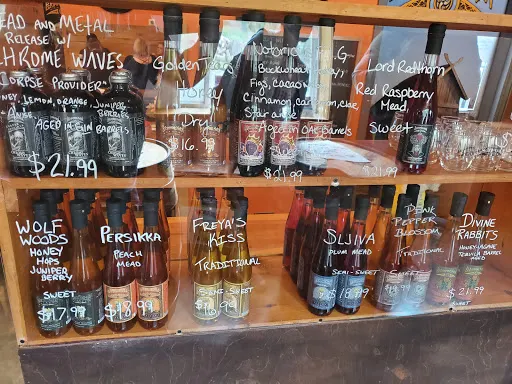 EAD AND METAL
RELEASE W/
CHROME WAVES
"CORPSE PROVIDER"
HONEY, LEMON, ORANGE, JUNIPER
ANISE
BERRIES
AGED IN GIN BARRELS
$21.99
Golden Tears
Honey
Dry
$16.99
Notorious F.I.G
Buckwheat Honey,
Figs, cacao nibs
Cinnamon, cardamon, clove
Star anise
Aged in Oak barrels
$21.99
Lord Rathorn
Red Raspberry
Mead
Sweet
$21.99
WOLF
WOODS
HONEY
HOPS
JUNIPER
BERRY
SWEET
$17.99
PERSIKKA
PEACH
MEAD
$18.99
FREYA'S
KISS
TRADITIONAL
SEMI-SWEET
$16.99
SLJIVA
PLUM MEAD
SEMI-SWEET
$18.99
PINK
PEPPER
BLOSSOM
TRADITIONAL
SWEET
$18.99
DIVINE
RABBITS
HONEY-AGAVE
TEQUILA BARREL
MEAD
$21.99
SWEET